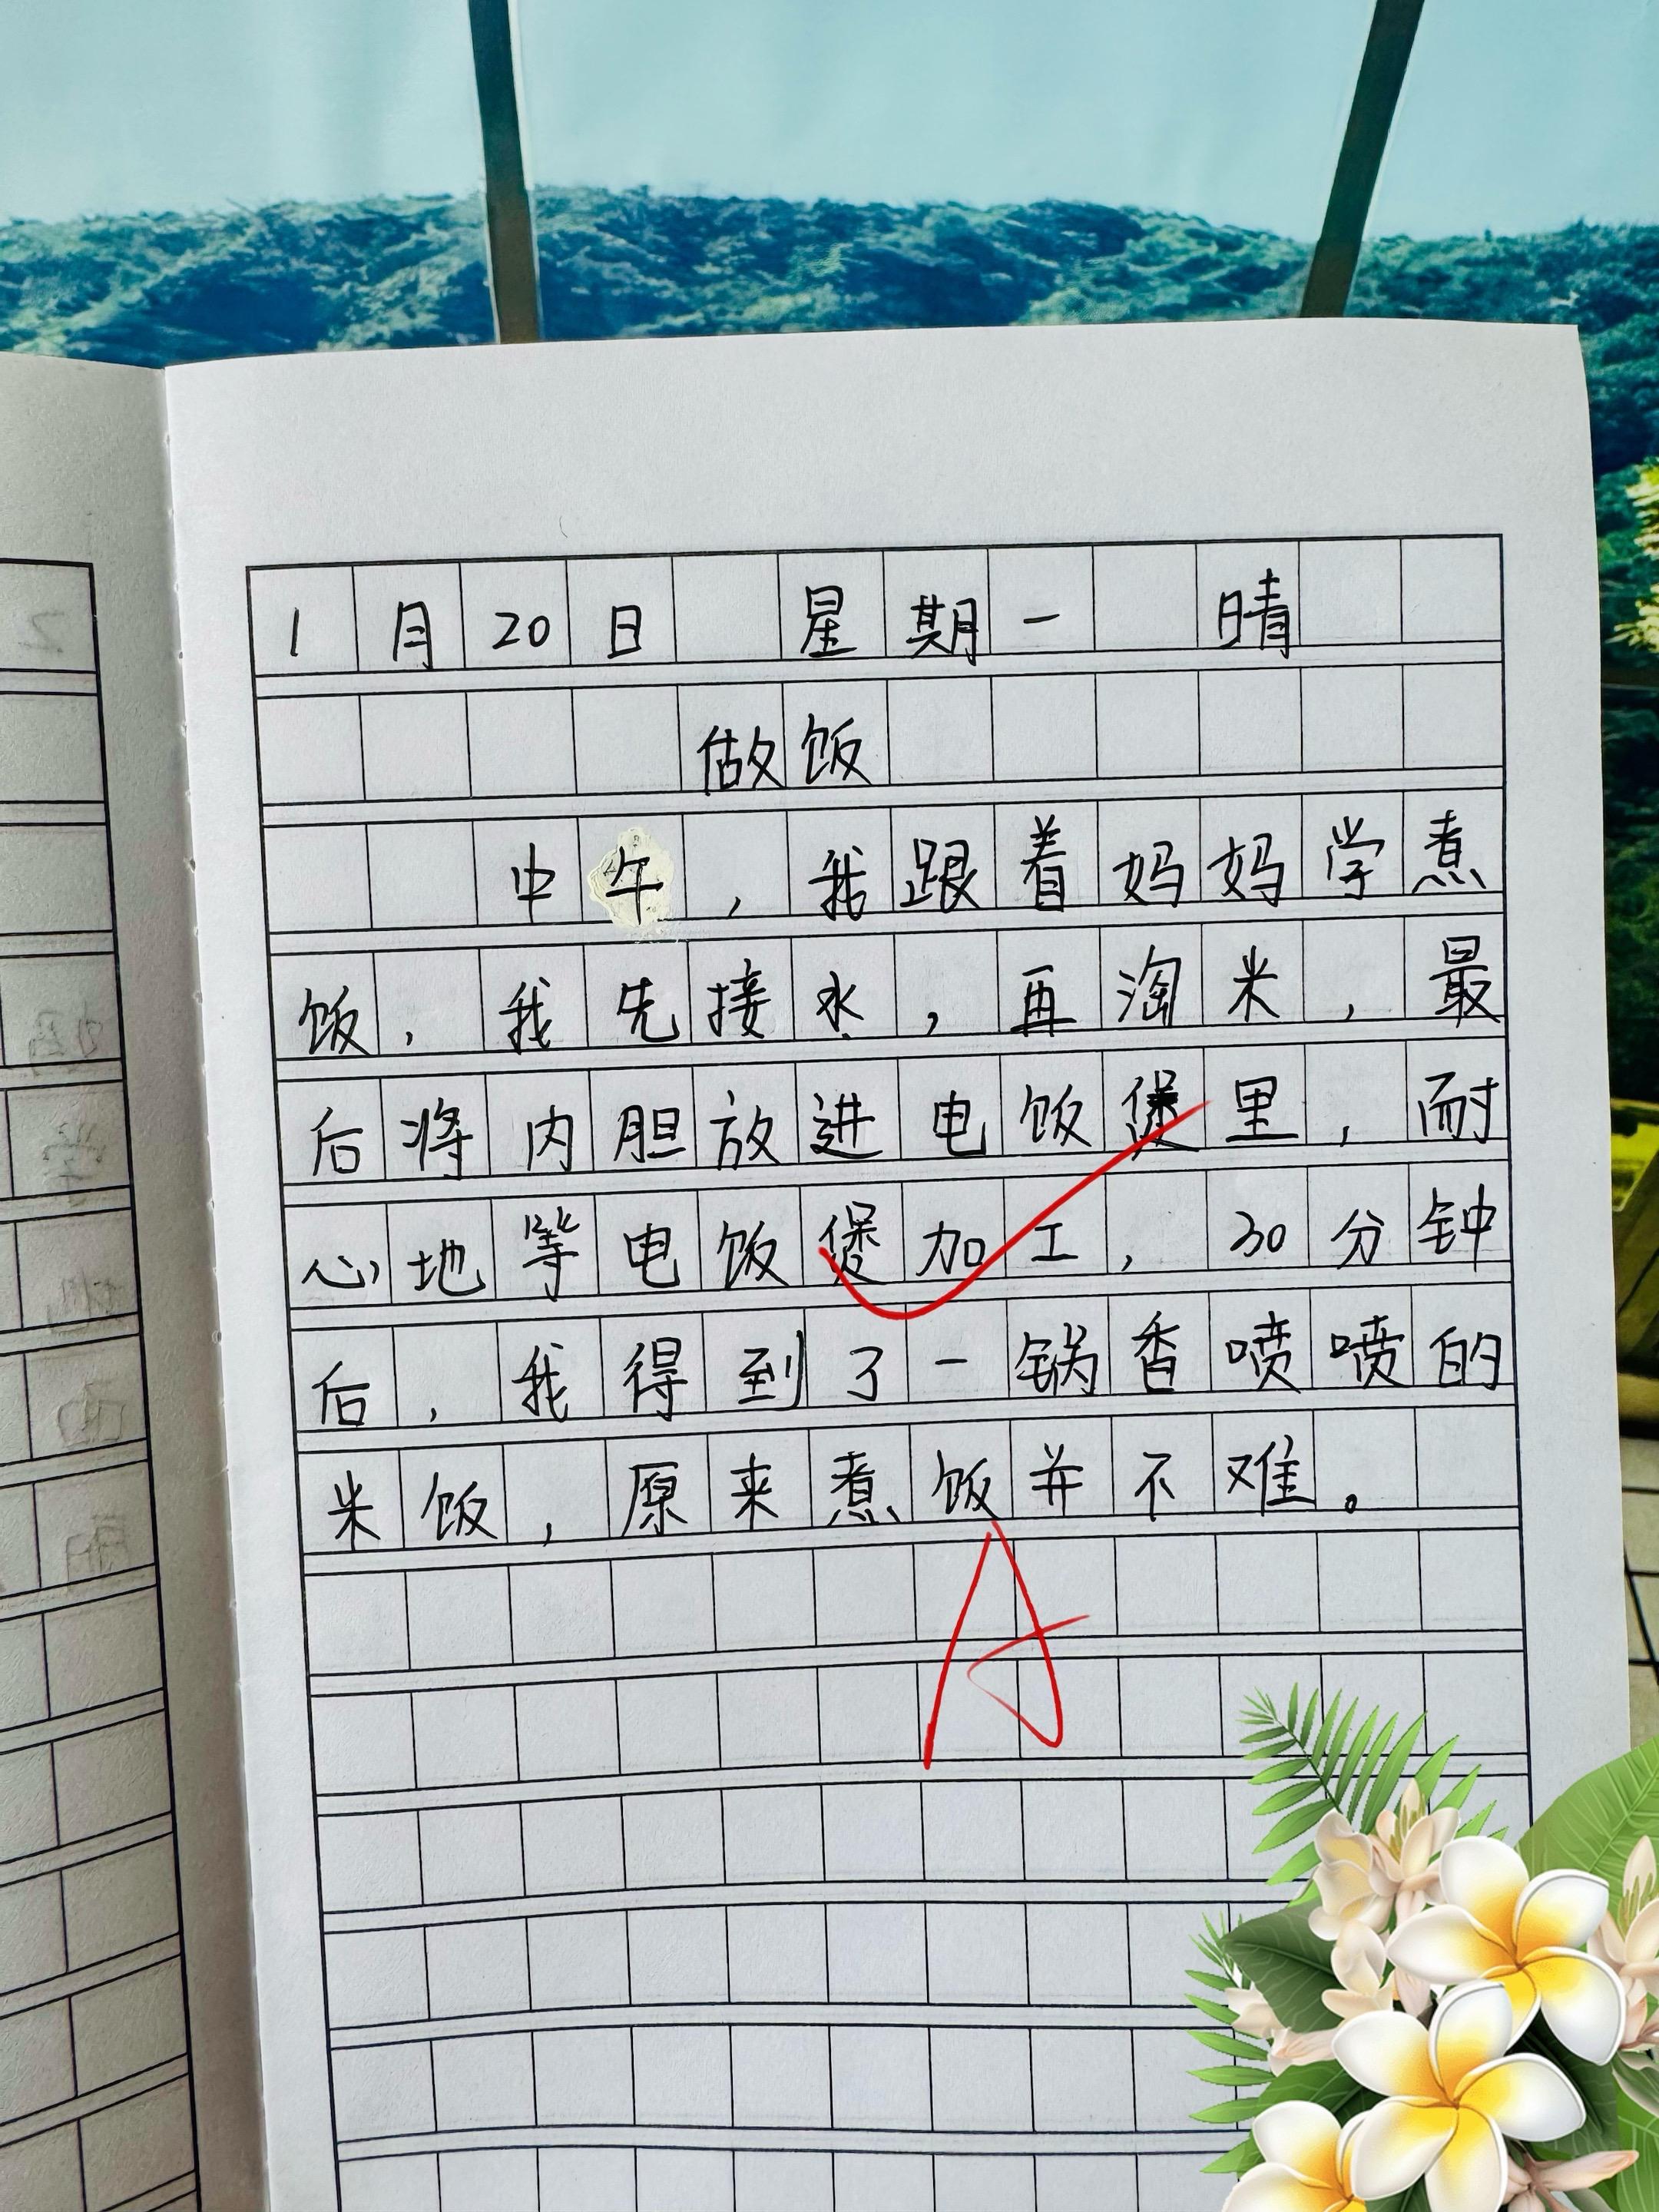 1月20日 星期一 晴
做饭
中午，我跟着妈妈学煮
饭，我先接水，再淘米，最
后将内胆放进电饭煲里，耐
心地等电饭煲加工，30分钟
后，我得到了一锅香喷喷的
米饭，原来煮饭并不难。
A